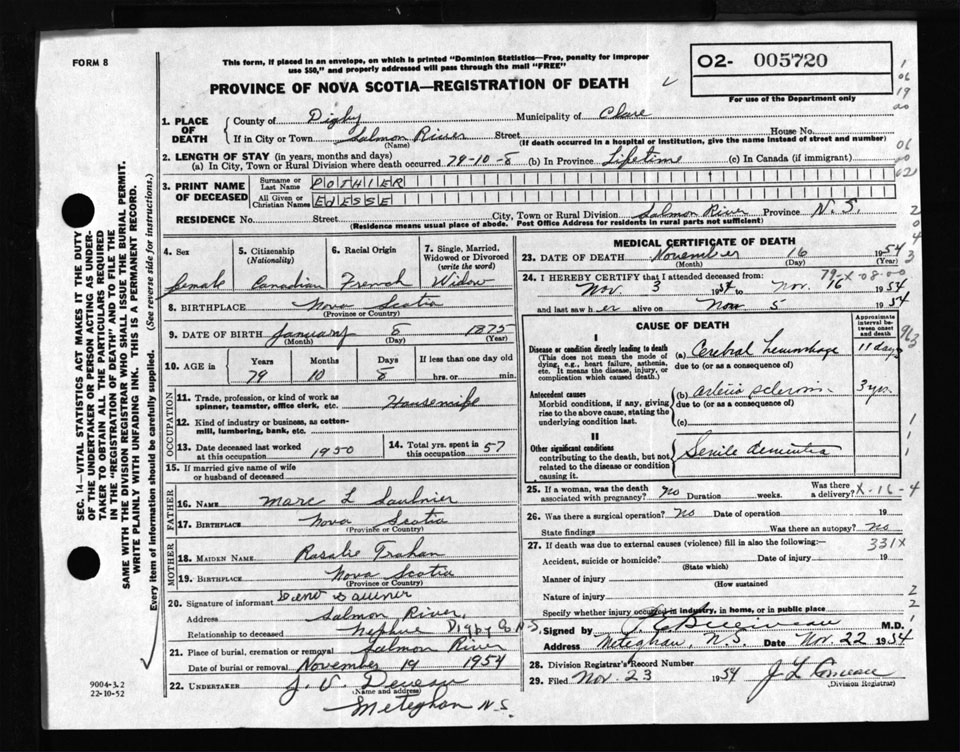 FORM 8
This form, if placed in an envelope, on which is printed "Dominion Statistics—Free, penalty for improper
use $50," and properly addressed will pass through the mail "FREE"
O2- 005720
For use of the Department only
PROVINCE OF NOVA SCOTIA—REGISTRATION OF DEATH
1. PLACE OF DEATH
County of Digby Municipality of Clare
If in City or Town Salmon River Street House No.
(Name) (If death occurred in a hospital or institution, give the name instead of street and number)
2. LENGTH OF STAY (in years, months and days)
(a) In City, Town or Rural Division where death occurred 79-10-8 (b) In Province Lifetime (c) In Canada (if immigrant)
3. PRINT NAME OF DECEASED
Surname or Last Name POTHIER
All Given or Christian Names EDESSE
RESIDENCE No. Street City, Town or Rural Division Salmon River Province N.S.
(Residence means usual place of abode. Post Office Address for residents in rural parts not sufficient)
4. Sex
Female
5. Citizenship
(Nationality)
Canadian
6. Racial Origin
French
7. Single, Married, Widowed or Divorced
(write the word)
Widow
8. BIRTHPLACE Nova Scotia
(Province or Country)
9. DATE OF BIRTH January 8 1875
(Month) (Day) (Year)
10. AGE in Years Months Days If less than one day old
79 10 8 hrs. or min.
OCCUPATION
11. Trade, profession, or kind of work as
spinner, teamster, office clerk, etc. Housewife
12. Kind of industry or business, as cotton-
mill, lumbering, bank, etc.
13. Date deceased last worked
at this occupation 1950
14. Total yrs. spent in
this occupation 57
15. If married give name of wife
or husband of deceased
FATHER
16. NAME Marc L Saulnier
17. BIRTHPLACE Nova Scotia
(Province or Country)
MOTHER
18. MAIDEN NAME Rosalie Trahan
19. BIRTHPLACE Nova Scotia
(Province or Country)
20. Signature of informant
Address Salmon River,
Relationship to deceased Nephew Digby Co N.S
21. Place of burial, cremation or removal Salmon River
Date of burial or removal November 19 1954
22. UNDERTAKER J. V. Deveau
(Name and address)
Meteghan N.S.
MEDICAL CERTIFICATE OF DEATH
23. DATE OF DEATH November 16 1954
(Month) (Day) (Year)
24. I HEREBY CERTIFY that I attended deceased from:
Nov. 3 1954 to Nov. 16 1954
and last saw her alive on Nov 5 1954
CAUSE OF DEATH
Approximate interval between onset and death
I
Disease or condition directly leading to death
(This does not mean the mode of
dying, e.g., heart failure, asthenia,
etc. It means the disease, injury, or
complication which caused death.)
(a) Cerebral hemorrhage 11 days
due to (or as a consequence of)
Antecedent causes
Morbid conditions, if any, giving
rise to the above cause, stating the
underlying condition last.
(b) arterio sclerosis 3 yrs.
due to (or as a consequence of)
(c)
II
Other significant conditions
contributing to the death, but not
related to the disease or condition
causing it.
Senile dementia
25. If a woman, was the death
associated with pregnancy? No Duration weeks. Was there a delivery? X-16-4
26. Was there a surgical operation? No Date of operation 19
State findings Was there an autopsy? No
27. If death was due to external causes (violence) fill in also the following:— 331X
Accident, suicide or homicide? Date of injury 19
(State which)
Manner of injury
(How sustained)
Nature of injury
Specify whether injury occurred in industry, in home, or in public place
Signed by M.D.
Address Meteghan, N.S. Date Nov. 22 1954
28. Division Registrar's Record Number
29. Filed Nov. 23 1954 J L Comeau
(Division Registrar)
SEC. 14—VITAL STATISTICS ACT MAKES IT THE DUTY
OF THE UNDERTAKER OR PERSON ACTING AS UNDER-
TAKER TO OBTAIN ALL THE PARTICULARS REQUIRED
IN THE "REGISTRATION OF DEATH" AND TO FILE THE
SAME WITH THE DIVISION REGISTRAR WHO SHALL ISSUE THE BURIAL PERMIT.
WRITE PLAINLY WITH UNFADING INK. THIS IS A PERMANENT RECORD.
Every item of information should be carefully supplied. (See reverse side for instructions.)
9004-3.2
22-10-52